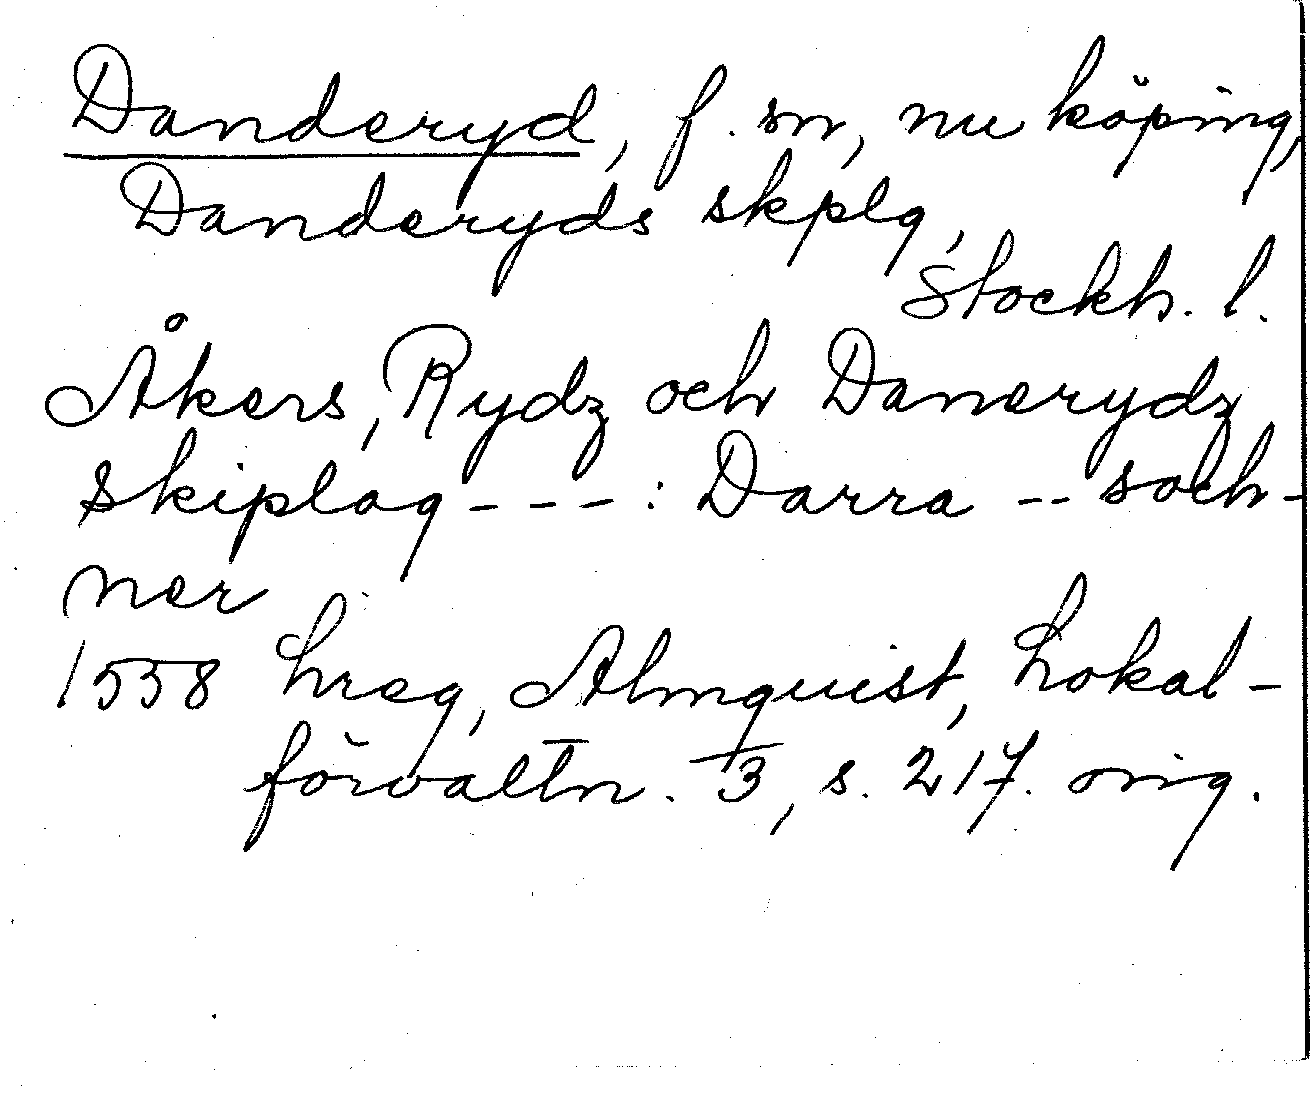 Danderyd, f. sn, nu köping,
Danderyds skplg,
Stockh. l.
Åkers, Rydz och Danerydz
skiplag - - - : Darra -- soch-
ner
1558 hreg, Almquist, Lokal-
förvaltn. 3, s. 217. orig.